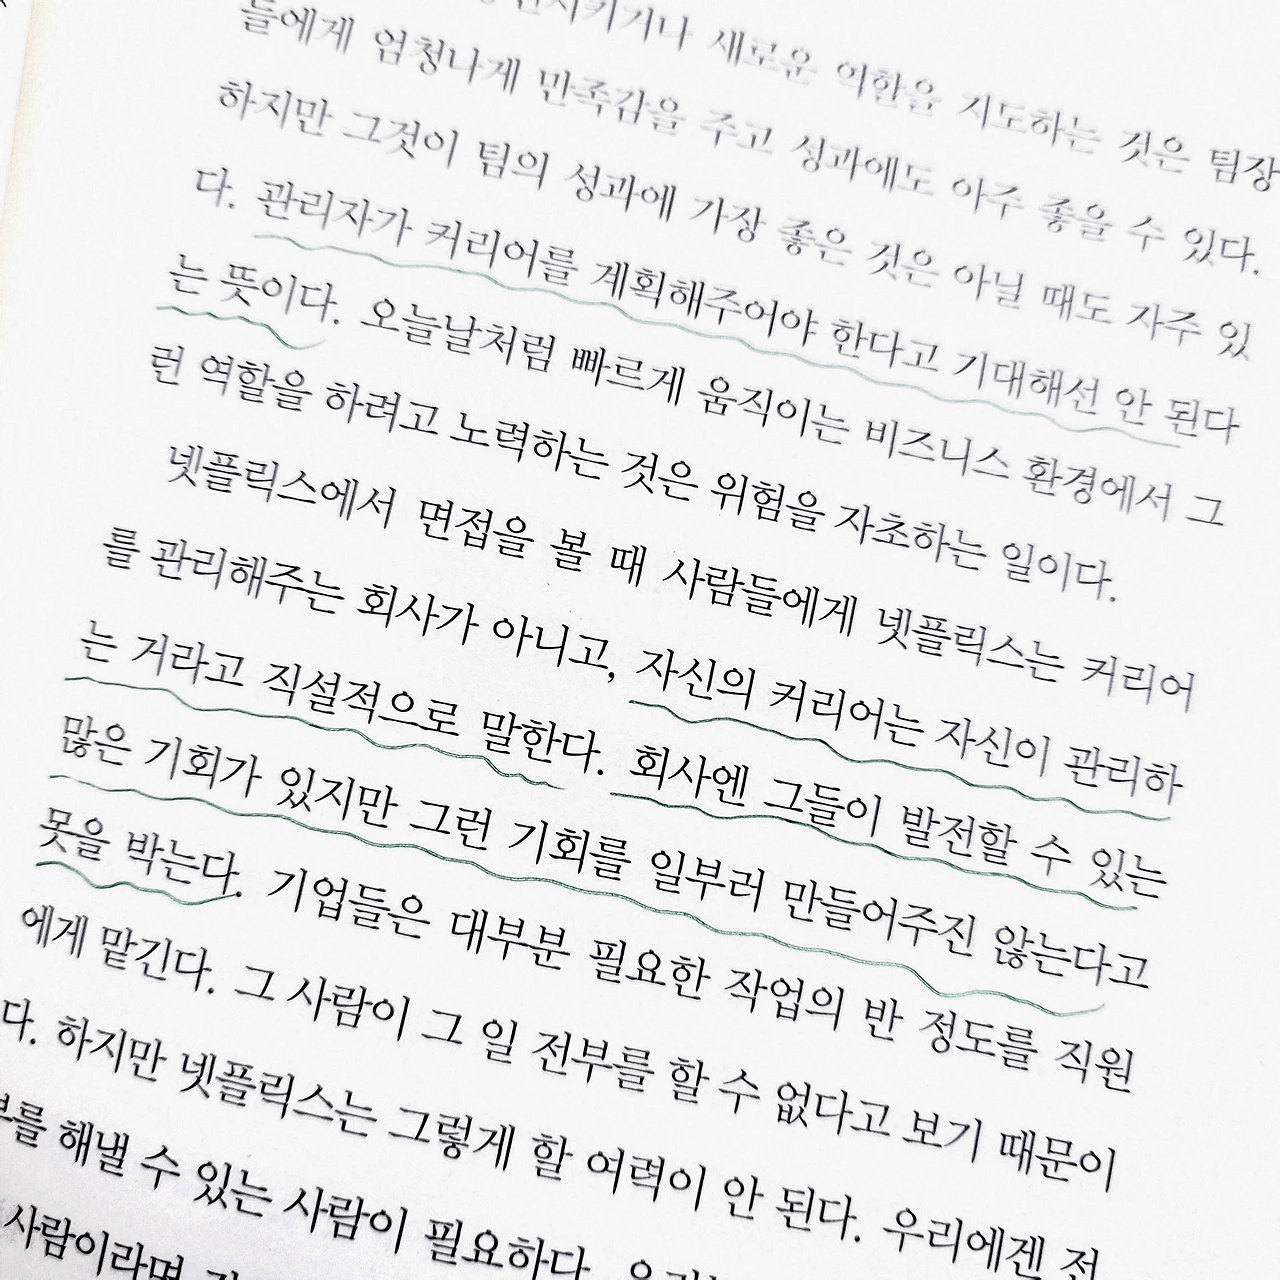 새로운 역할을 지도하는 것은 팀장
들에게 엄청나게 만족감을 주고 성과에도 아주 좋을 수 있다.
하지만 그것이 팀의 성과에 가장 좋은 것은 아닐 때도 자주 있
다. 관리자가 커리어를 계획해주어야 한다고 기대해선 안 된다
는 뜻이다. 오늘날처럼 빠르게 움직이는 비즈니스 환경에서 그
런 역할을 하려고 노력하는 것은 위험을 자초하는 일이다.
넷플릭스에서 면접을 볼 때 사람들에게 넷플릭스는 커리어
를 관리해주는 회사가 아니고, 자신의 커리어는 자신이 관리하
는 거라고 직설적으로 말한다. 회사엔 그들이 발전할 수 있는
많은 기회가 있지만 그런 기회를 일부러 만들어주진 않는다고
못을 박는다. 기업들은 대부분 필요한 작업의 반 정도를 직원
에게 맡긴다. 그 사람이 그 일 전부를 할 수 없다고 보기 때문이
다. 하지만 넷플릭스는 그렇게 할 여력이 안 된다. 우리에겐 전
부를 해낼 수 있는 사람이 필요하다.
사람이라면